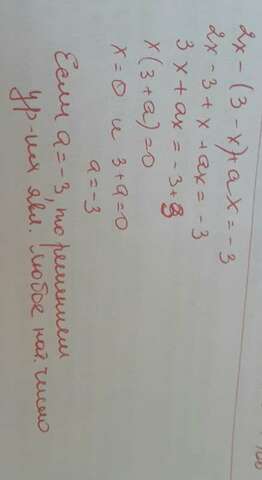 2x-(3-x)+ax=-3
2x-3+x+ax=-3
3x+ax=-3+3
x(3+a)=0
x=0 и 3+a=0
a=-3
Если a=-3, то решением
ур-ия явл. любое нат. число